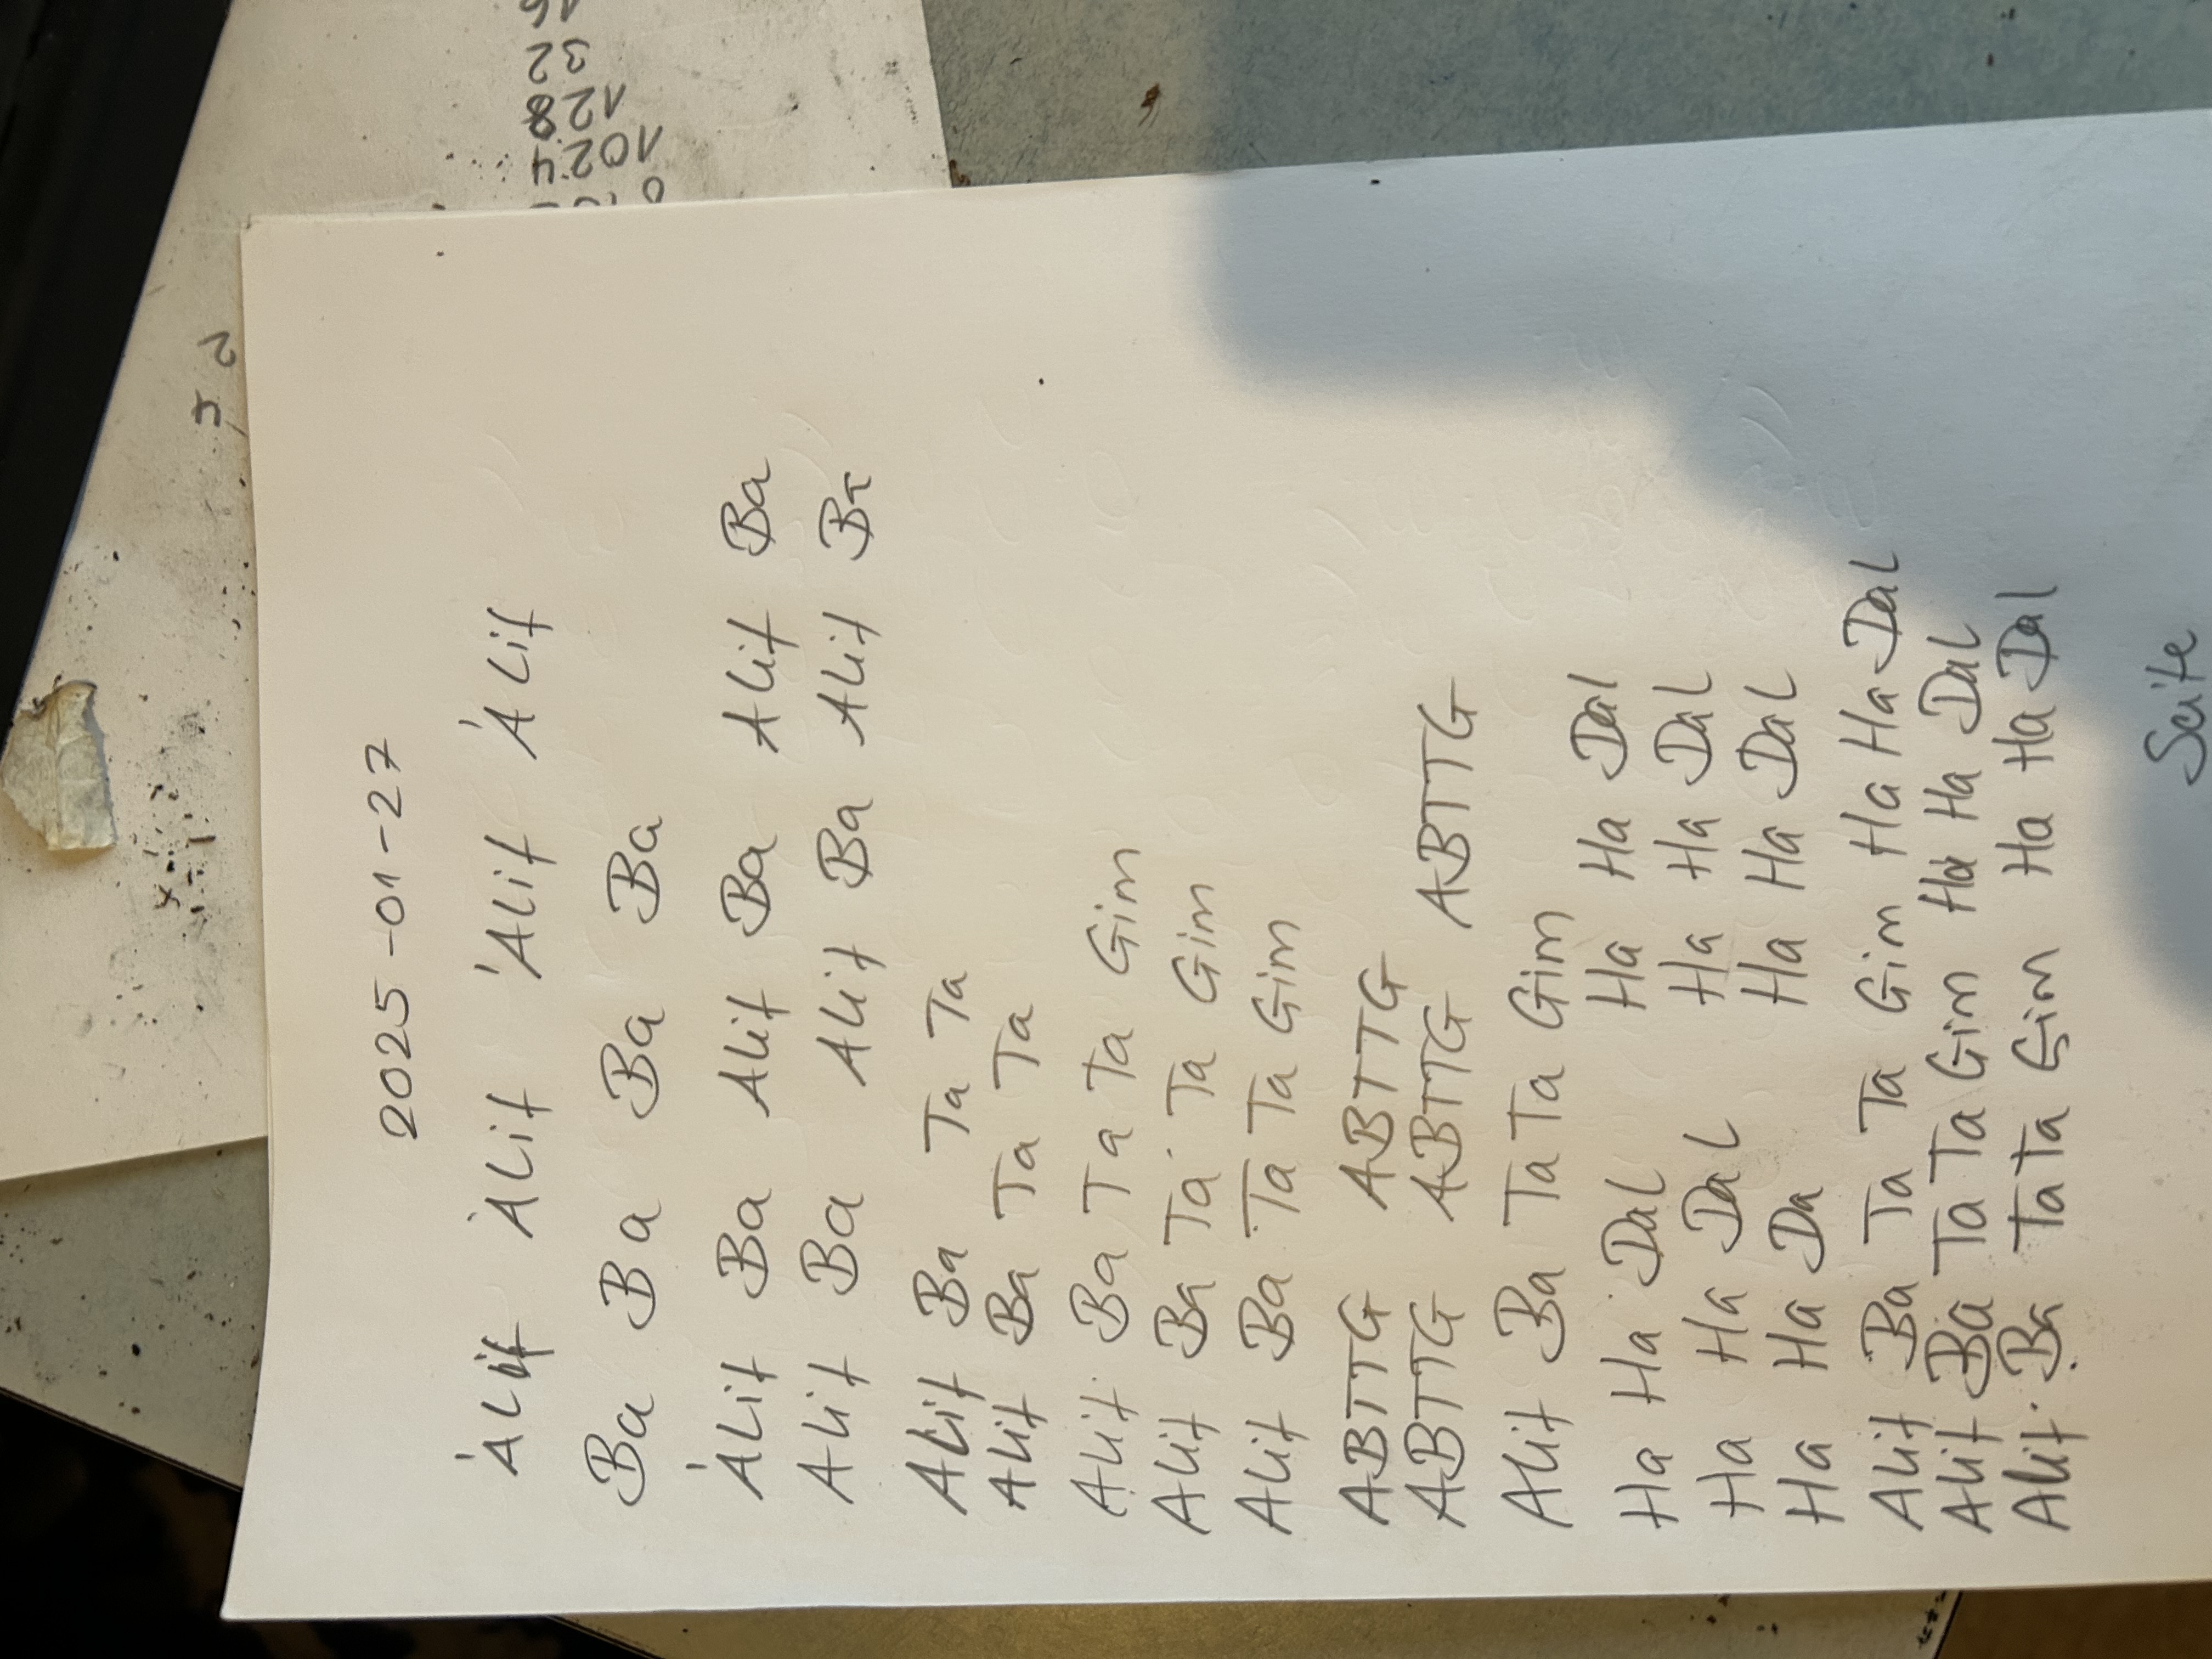 16
32
128
1024
2
5
2025-01-27
'ALif 'ALif 'ALif 'ALif
Ba Ba Ba Ba
'ALif Ba Alif Ba Alif Ba
Alif Ba Alif Ba Alif Ba
Alif Ba Ta Ta
Alif Ba Ta Ta
Alif Ba Ta Ta Gim
Alif Ba Ta Ta Gim
Alif Ba Ta Ta Gim
ABTTG ABTTG
ABTTG ABTTG ABTTG
Alif Ba Ta Ta Gim
Ha Ha Dal Ha Ha Dal
Ha Ha Dal Ha Ha Dal
Ha Ha Da Ha Ha Dal
Alif Ba Ta Ta Gim Ha Ha Dal
Alif Ba Ta Ta Gim Ha Ha Dal
Alif Ba Ta Ta Gim Ha Ha Dal
Seite